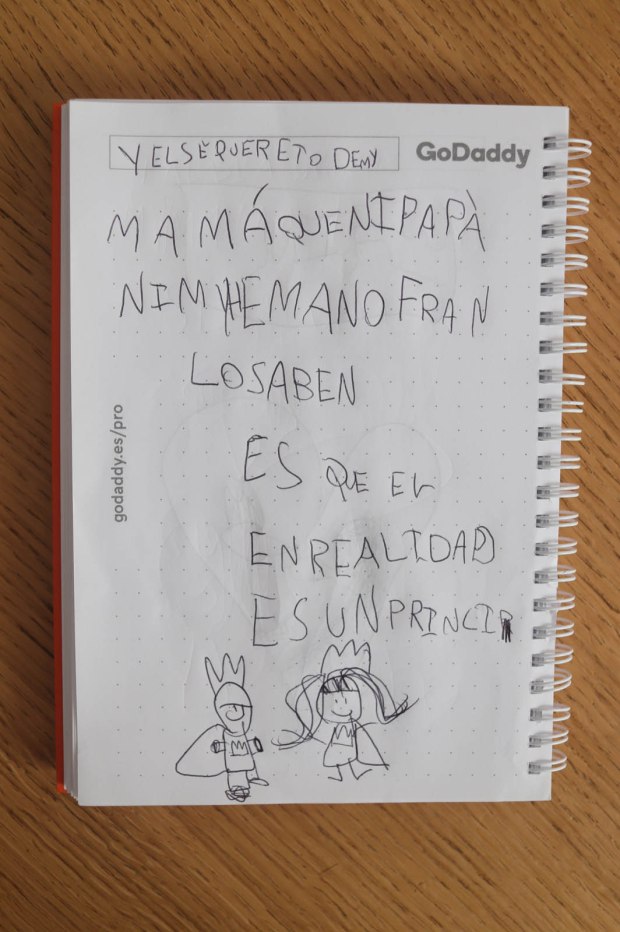 Y EL SÈQUERETO DEMY
GoDaddy
MAMÁ QUE NI PAPÀ
NI MY HEMANO FRAN
LO SABEN
ES QUE EL
EN REALIDAD
ES UN PRINCIP
godaddy.es/pro